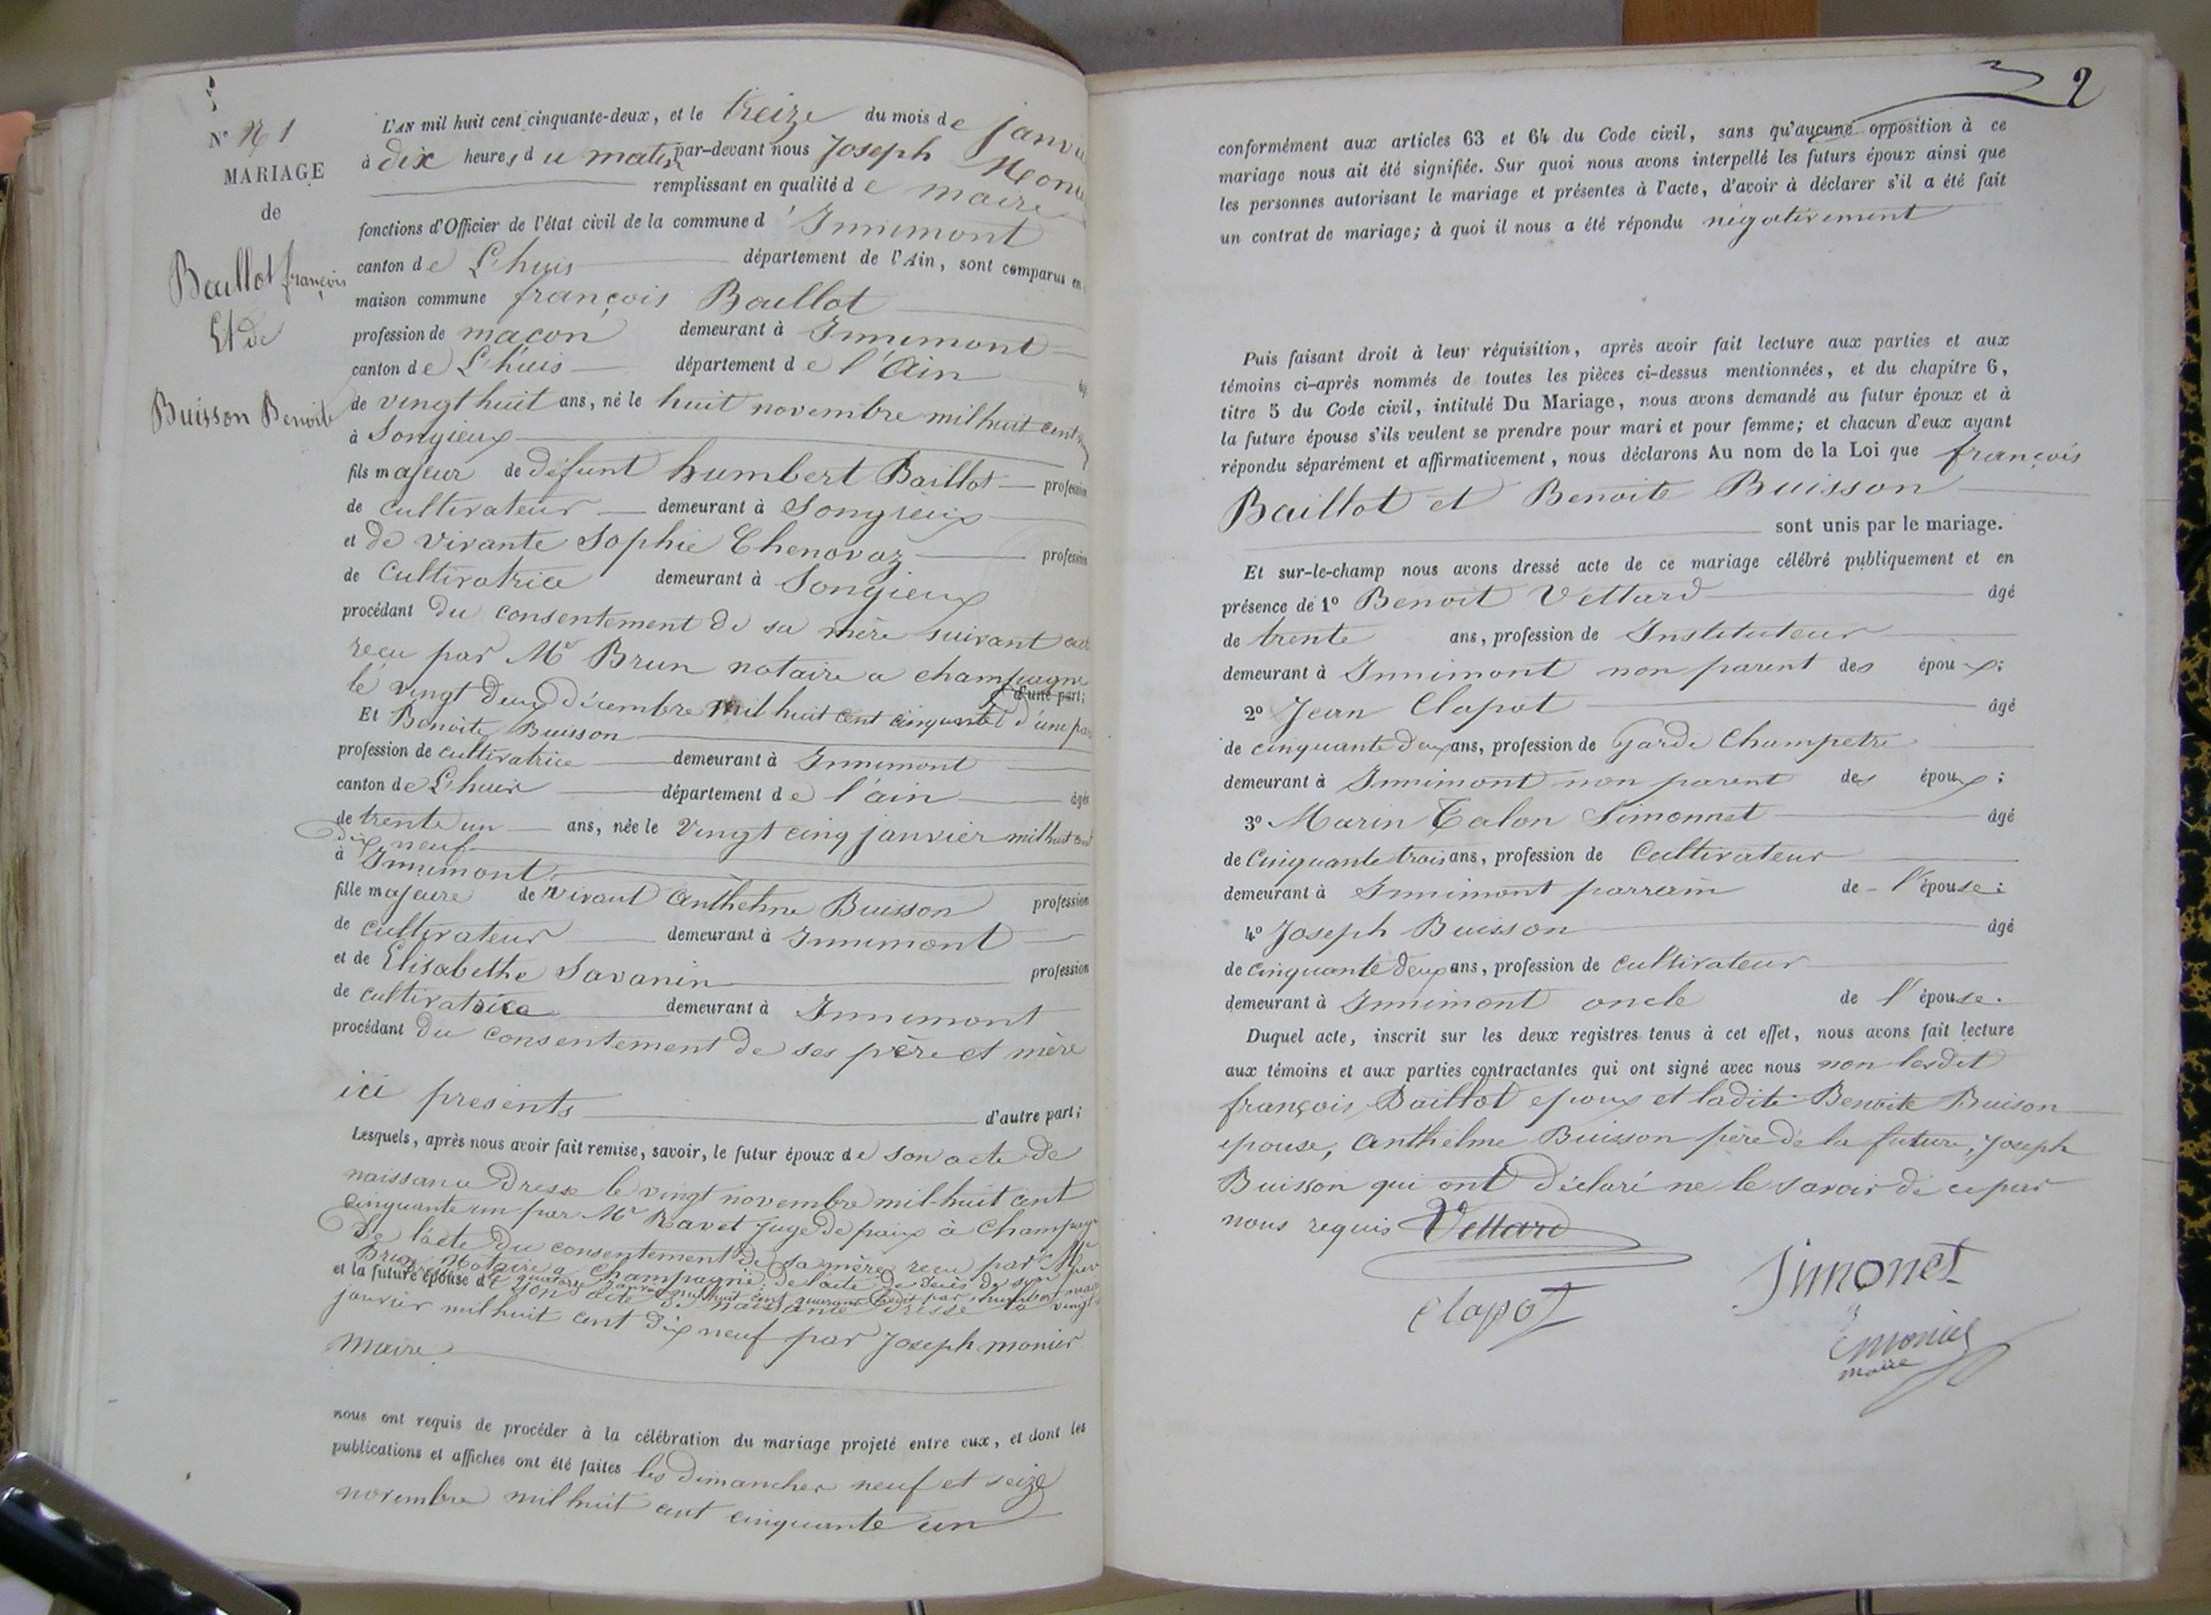 N° 1
MARIAGE
de
Baillot françois
Et de
Buisson Benoite
L'AN mil huit cent cinquante-deux, et le treize du mois de janvier
à dix heures du matin par-devant nous Joseph
remplissant en qualité de maire
fonctions d'Officier de l'état civil de la commune d'Innimont
canton de L'huis département de l'Ain, sont comparus en
maison commune françois Baillot
profession de maçon demeurant à Innimont
canton de L'huis département de l'Ain
de vingt huit ans, né le huit novembre mil huit cent
à Songieux
fils majeur de défunt humbert Baillot profession
de cultivateur demeurant à Songieux
et de vivante Sophie Chenovaz profession
de cultivatrice demeurant à Songieux
procédant du consentement de sa mère suivant
reçu par Mr Brun notaire a champagne
le vingt deux décembre mil huit cent cinquante d'une part;
Et Benoite Buisson
profession de cultivatrice demeurant à Innimont
canton de L'huis département de l'ain âgée
de trente un ans, née le vingt cinq janvier mil huit cent
dix neuf
à Innimont
fille majeure de vivant Anthelme Buisson profession
de cultivateur demeurant à Innimont
et de Elisabethe Savanin profession
de cultivatrice demeurant à Innimont
procédant du consentement de ses père et mère
ici presents d'autre part;
Lesquels, après nous avoir fait remise, savoir, le futur époux de son acte de
naissance dressé le vingt novembre mil-huit cent
cinquante un par Mr Ravet Juge de paix à Champagne
De l'acte du consentement de sa mère reçu par Me
Brun Notaire a Champagne, de l'acte de deces de son père
et la future épouse de son acte de naissance dressé le vingt
janvier mil huit cent dix neuf par Joseph monier
maire
nous ont requis de procéder à la célébration du mariage projeté entre eux, et dont les
publications et affiches ont été faites les dimanches neuf et seize
novembre mil huit cent cinquante un
2
conformément aux articles 63 et 64 du Code civil, sans qu'aucune opposition à ce
mariage nous ait été signifiée. Sur quoi nous avons interpellé les futurs époux ainsi que
les personnes autorisant le mariage et présentes à l'acte, d'avoir à déclarer s'il a été fait
un contrat de mariage; à quoi il nous a été répondu négativement
Puis faisant droit à leur réquisition, après avoir fait lecture aux parties et aux
témoins ci-après nommés de toutes les pièces ci-dessus mentionnées, et du chapitre 6,
titre 5 du Code civil, intitulé Du Mariage, nous avons demandé au futur époux et à
la future épouse s'ils veulent se prendre pour mari et pour femme; et chacun d'eux ayant
répondu séparément et affirmativement, nous déclarons Au nom de la Loi que françois
Baillot et Benoite Buisson
sont unis par le mariage.
Et sur-le-champ nous avons dressé acte de ce mariage célébré publiquement et en
présence de 1° Benoit Vettard âgé
de trente ans, profession de Instituteur
demeurant à Innimont non parent des époux;
2° Jean Clapot âgé
de cinquante deux ans, profession de Garde Champetre
demeurant à Innimont non parent des époux;
3° Marin Talon Simonnet âgé
de Cinquante trois ans, profession de Cultivateur
demeurant à Innimont parrain de l'épouse;
4° Joseph Buisson âgé
de cinquante deux ans, profession de cultivateur
demeurant à Innimont oncle de l'épouse.
Duquel acte, inscrit sur les deux registres tenus à cet effet, nous avons fait lecture
aux témoins et aux parties contractantes qui ont signé avec nous non lesdit
françois Baillot epoux et ladite Benoite Buison
epouse, Anthelme Buisson père de la future, Joseph
Buisson qui ont déclaré ne le savoir de ce par
nous requis Vettard
Simonet
Clapot
Monier
maire